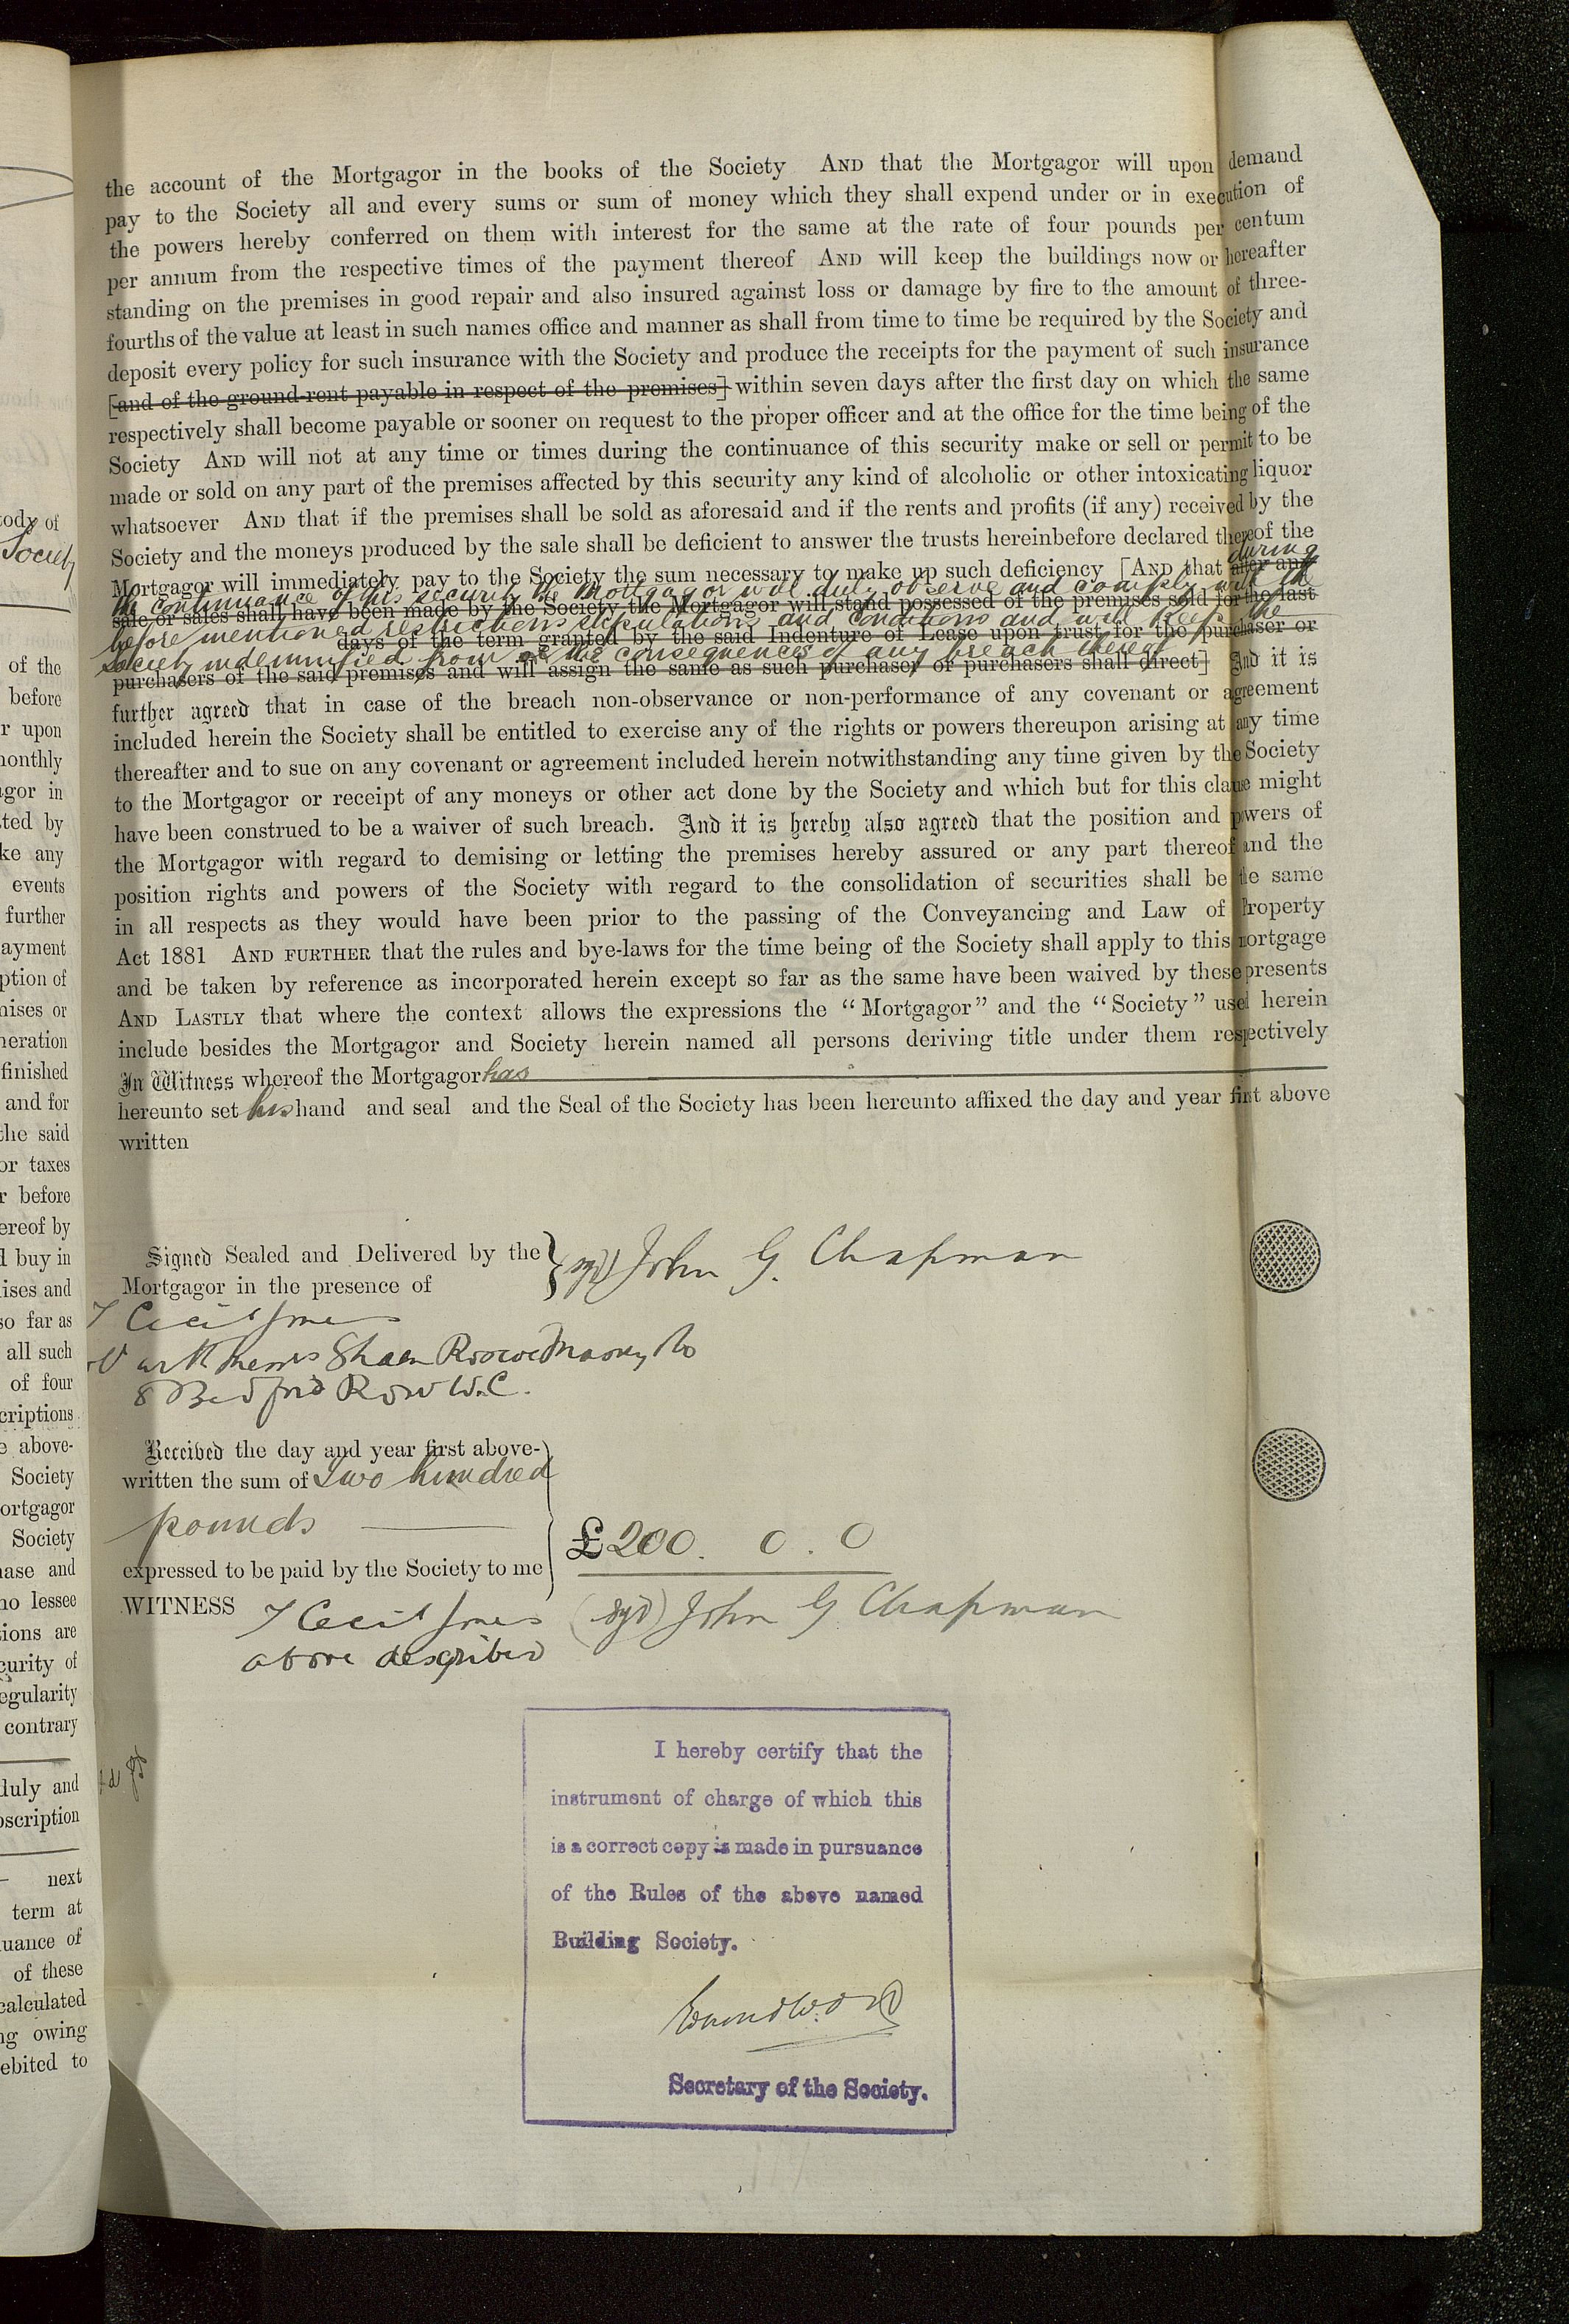 the account of the Mortgagor in the books of the Society AND that the Mortgagor will upon demand
pay to the Society all and every sums or sum of money which they shall expend under or in execution of
the powers hereby conferred on them with interest for the same at the rate of four pounds per centum
per annum from the respective times of the payment thereof AND will keep the buildings now or hereafter
standing on the premises in good repair and also insured against loss or damage by fire to the amount of three-
fourths of the value at least in such names office and manner as shall from time to time be required by the Society and
deposit every policy for such insurance with the Society and produce the receipts for the payment of such insurance
[and of the ground-rent payable in respect of the premises] within seven days after the first day on which the same
respectively shall become payable or sooner on request to the proper officer and at the office for the time being of the
Society AND will not at any time or times during the continuance of this security make or sell or permit to be
made or sold on any part of the premises affected by this security any kind of alcoholic or other intoxicating liquor
whatsoever AND that if the premises shall be sold as aforesaid and if the rents and profits (if any) received by the
Society and the moneys produced by the sale shall be deficient to answer the trusts hereinbefore declared thereof the
during
Mortgagor will immediately pay to the Society the sum necessary to make up such deficiency [AND that after any
the continuance of this security the Mortgagor will duly observe and comply with the
sale or sales shall have been made by the Society the Mortgagor will stand possessed of the premises sold for the last
before mentioned restrictions stipulations and conditions and will keep the
days of the term granted by the said Indenture of Lease upon trust for the purchaser or
Society indemnified from all the consequences of any breach thereof
purchasers of the said premises and will assign the same as such purchaser or purchasers shall direct] And it is
further agreed that in case of the breach non-observance or non-performance of any covenant or agreement
included herein the Society shall be entitled to exercise any of the rights or powers thereupon arising at any time
thereafter and to sue on any covenant or agreement included herein notwithstanding any time given by the Society
to the Mortgagor or receipt of any moneys or other act done by the Society and which but for this clause might
have been construed to be a waiver of such breach. And it is hereby also agreed that the position and powers of
the Mortgagor with regard to demising or letting the premises hereby assured or any part thereof and the
position rights and powers of the Society with regard to the consolidation of securities shall be the same
in all respects as they would have been prior to the passing of the Conveyancing and Law of Property
Act 1881 AND FURTHER that the rules and bye-laws for the time being of the Society shall apply to this mortgage
and be taken by reference as incorporated herein except so far as the same have been waived by these presents
AND LASTLY that where the context allows the expressions the “Mortgagor” and the “Society” used herein
include besides the Mortgagor and Society herein named all persons deriving title under them respectively
In Witness whereof the Mortgagor has
hereunto set his hand and seal and the Seal of the Society has been hereunto affixed the day and year first above
written
Signed Sealed and Delivered by the
Mortgagor in the presence of
(sgd) John G. Chapman
Cecil Jones
Shaen Roscoe Massey & Co
8 Bedford Row W.C.
Received the day and year first above-
written the sum of two hundred
pounds
expressed to be paid by the Society to me
£200. 0. 0
WITNESS
Cecil Jones
above described
(sgd) John G Chapman
I hereby certify that the
instrument of charge of which this
is a correct copy is made in pursuance
of the Rules of the above named
Building Society.
Secretary of the Society.
ody of
Society
of the
before
r upon
monthly
agor in
ted by
ke any
events
further
ayment
ption of
nises or
neration
finished
and for
the said
or taxes
r before
ereof by
d buy in
ises and
so far as
all such
of four
criptions
e above-
Society
ortgagor
Society
ase and
no lessee
tions are
curity of
egularity
contrary
duly and
bscription
next
term at
uance of
of these
calculated
ng owing
ebited to